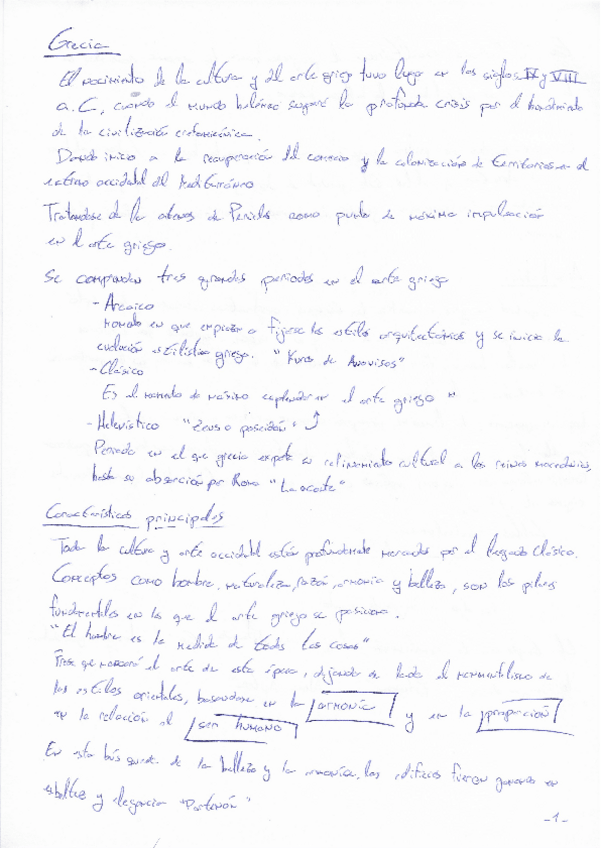 Grecia
El nacimiento de la cultura y del arte griego tuvo lugar en los siglos IX y VIII
a.C, cuando el mundo heleno superó la profunda crisis por el hundimiento
de la civilización cretomicénica.
Dando inicio a la recuperación del comercio y la colonización de territorios en el
extremo occidental del Mediterráneo
Tratandose de la atenas de Pericles como punto de máxima impulsación
en el arte griego.
Se comprenden tres grandes periodos en el arte griego
- Arcaico
Momento en que empiezan a fijarse los estilos arquitectónicos y se inicia la
evolución estilística griega. "Kuros de Anavisos"
- Clásico
Es el momento de máximo esplendor en el arte griego "
- Helenístico "Zeus o poseidón"
Periodo en el que grecia exporta su refinamiento cultural a los reinos macedonios,
hasta su absorción por Roma "Laocoonte"
Características principales
Toda la cultura y arte occidental están profundamente marcados por el llegado Clásico.
Conceptos como hombre, naturaleza, razón, armonía y belleza, son los pilares
fundamentales en los que el arte griego se posiciona.
"El hombre es la medida de todas las cosas"
Frase que marcará el arte de esta época, dejando de lado el monumentalismo de
los estilos orientales, basandose en la armonía y en la proporción
en la relación al ser humano
En esta búsqueda de la belleza y la armonía, los edificios fueron ganando en
esbeltez y elegancia "Partenón"
-1-